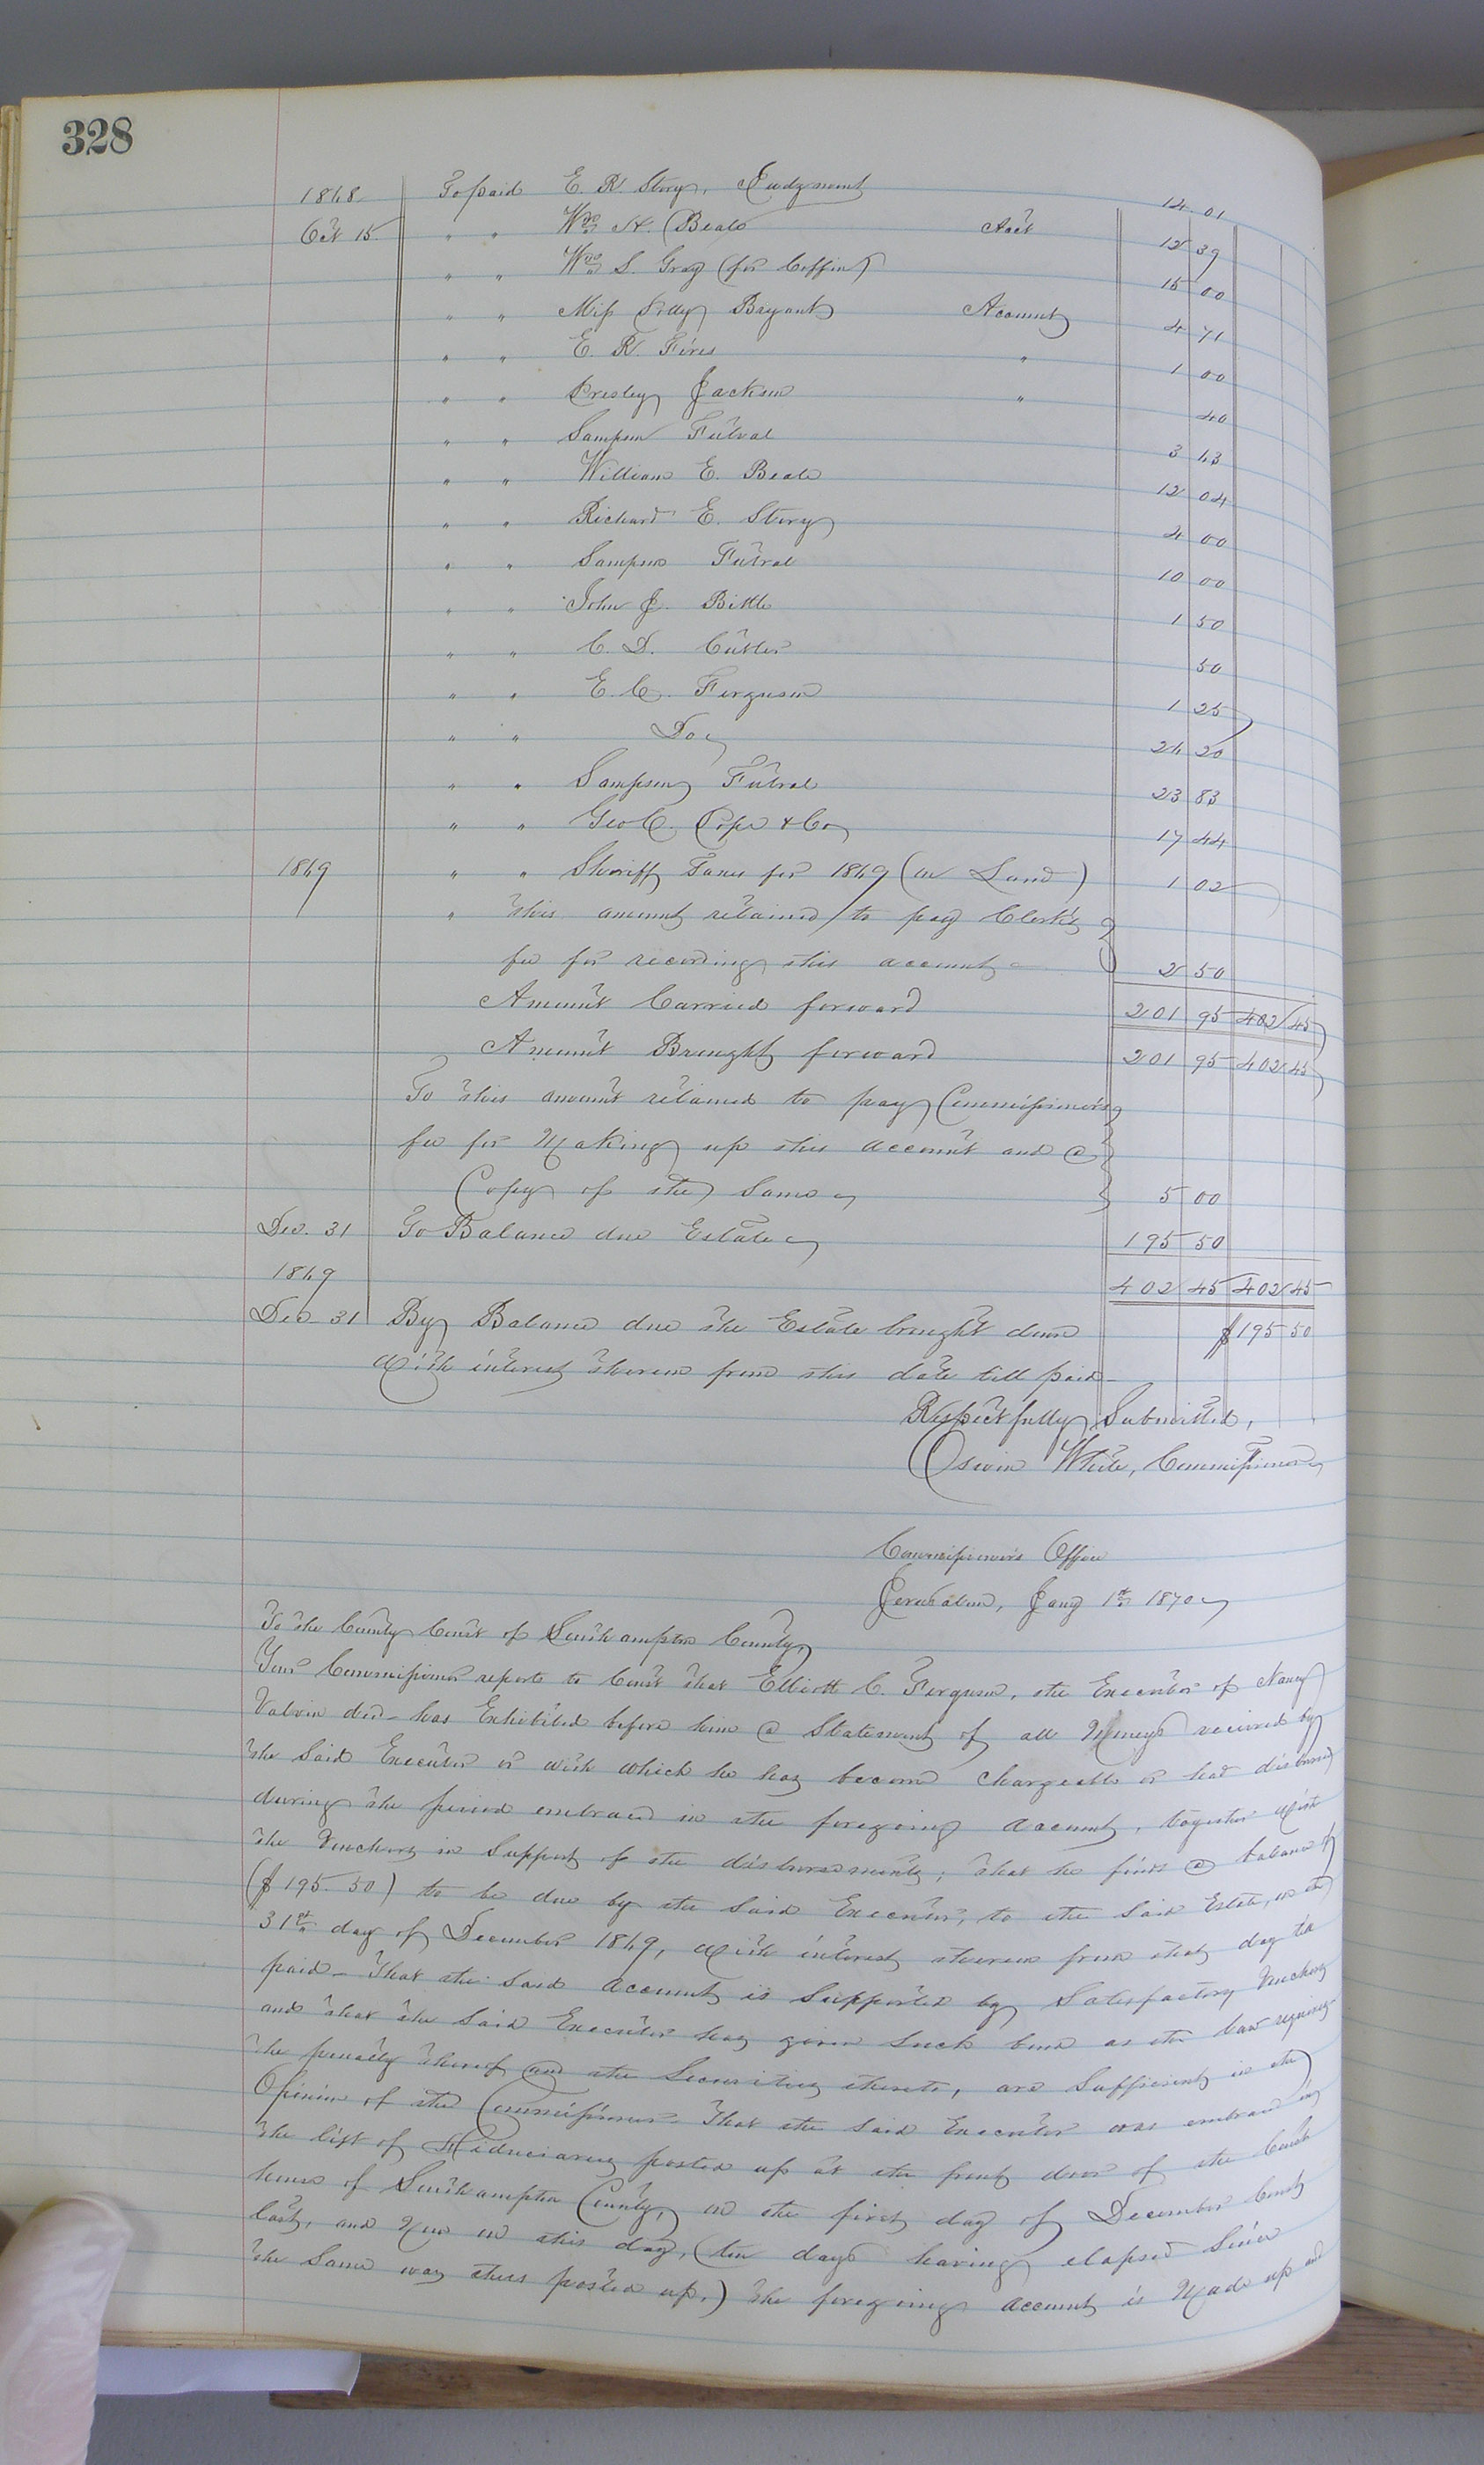 328
1868 To paid E. R. Story, Judgment 14 01
Oct 15 " " Wm H. Beale Acct 12 39
" " Wm S. Gray (for Coffin) 15 00
" " Miss Bryant Account 4 71
" " E. R. " 1 00
" " Presley Jackson " 40
" " Sampson Futral 3 63
" " William E. Beale 12 04
" " Richard E. Story 4 00
" " Sampson Futral 10 00
" " John J. Bittle 1 50
" " C. D. Cutler 50
" " E. C. Ferguson 1 25
" " Do 26 20
" " Sampson Futral 23 83
" " Geo C. Pope & Co 17 44
1869 " " Sheriff Taxes for 1869 (on Land) 1 02
" this amount retained to pay Clerk's
fee for recording this account 2 50
Amount Carried forward 201 95 402 45
Amount Brought forward 201 95 402 45
To this amount retained to pay Commissioner's
fee for Making up this account and a
Copy of the Same 5 00
Dec. 31 To Balance due Estate 195 50
1869 402 45 402 45
Dec 31 By Balance due the Estate brought down $195 50
With interest thereon from this date till paid—
Respectfully Submitted,
Oswin White, Commissioner
Commissioner's Office
Jerusalem, Jany 1st 1870
To the County Court of Southampton County,
Your Commissioner reports to Court that Elliott C. Ferguson, the Executor of Nancy
decd— has Exhibited before him a Statement of all Moneys received by
the Said Executor or with which he has become chargeable or had disbursed
during the period embraced in the foregoing account, together with
the Vouchers in Support of the disbursements; that he finds a balance of
($195.50) to be due by the Said Executor, to the Said Estate, on the
31st day of December 1869, with interest thereon from that day til
paid— That the Said account is Supported by Satisfactory Vouchers
and that the Said Executor has given Such bond as the law requires—
the penalty thereof and the Securities thereto, are Sufficient in the
Opinion of the Commissioner. That the Said Executor was embraced in
the list of Fiduciaries posted up at the front door of the Court
house of Southampton County, on the first day of December Court
last, and Now on this day, (ten days having elapsed Since
the Same was thus posted up,) the foregoing account is Made up and